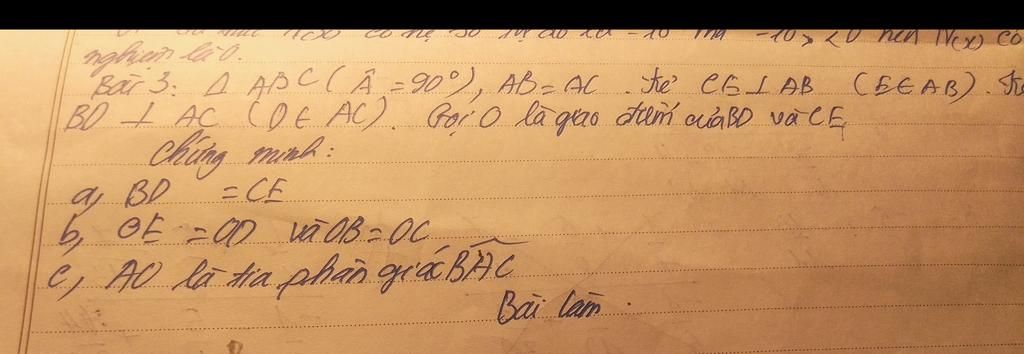 có hệ số tự do là -10 mà -10 < 0 nên N(x) có
nghiệm là 0.
Bài 3: Δ ABC ( Â = 90°), AB = AC. kẻ CE ⊥ AB (E ∈ AB). kẻ
BD ⊥ AC (D ∈ AC). Gọi O là giao điểm của BD và CE
Chứng minh:
a, BD = CE
b, OE = OD và OB = OC
c, AO là tia phân giác BAC
Bài làm